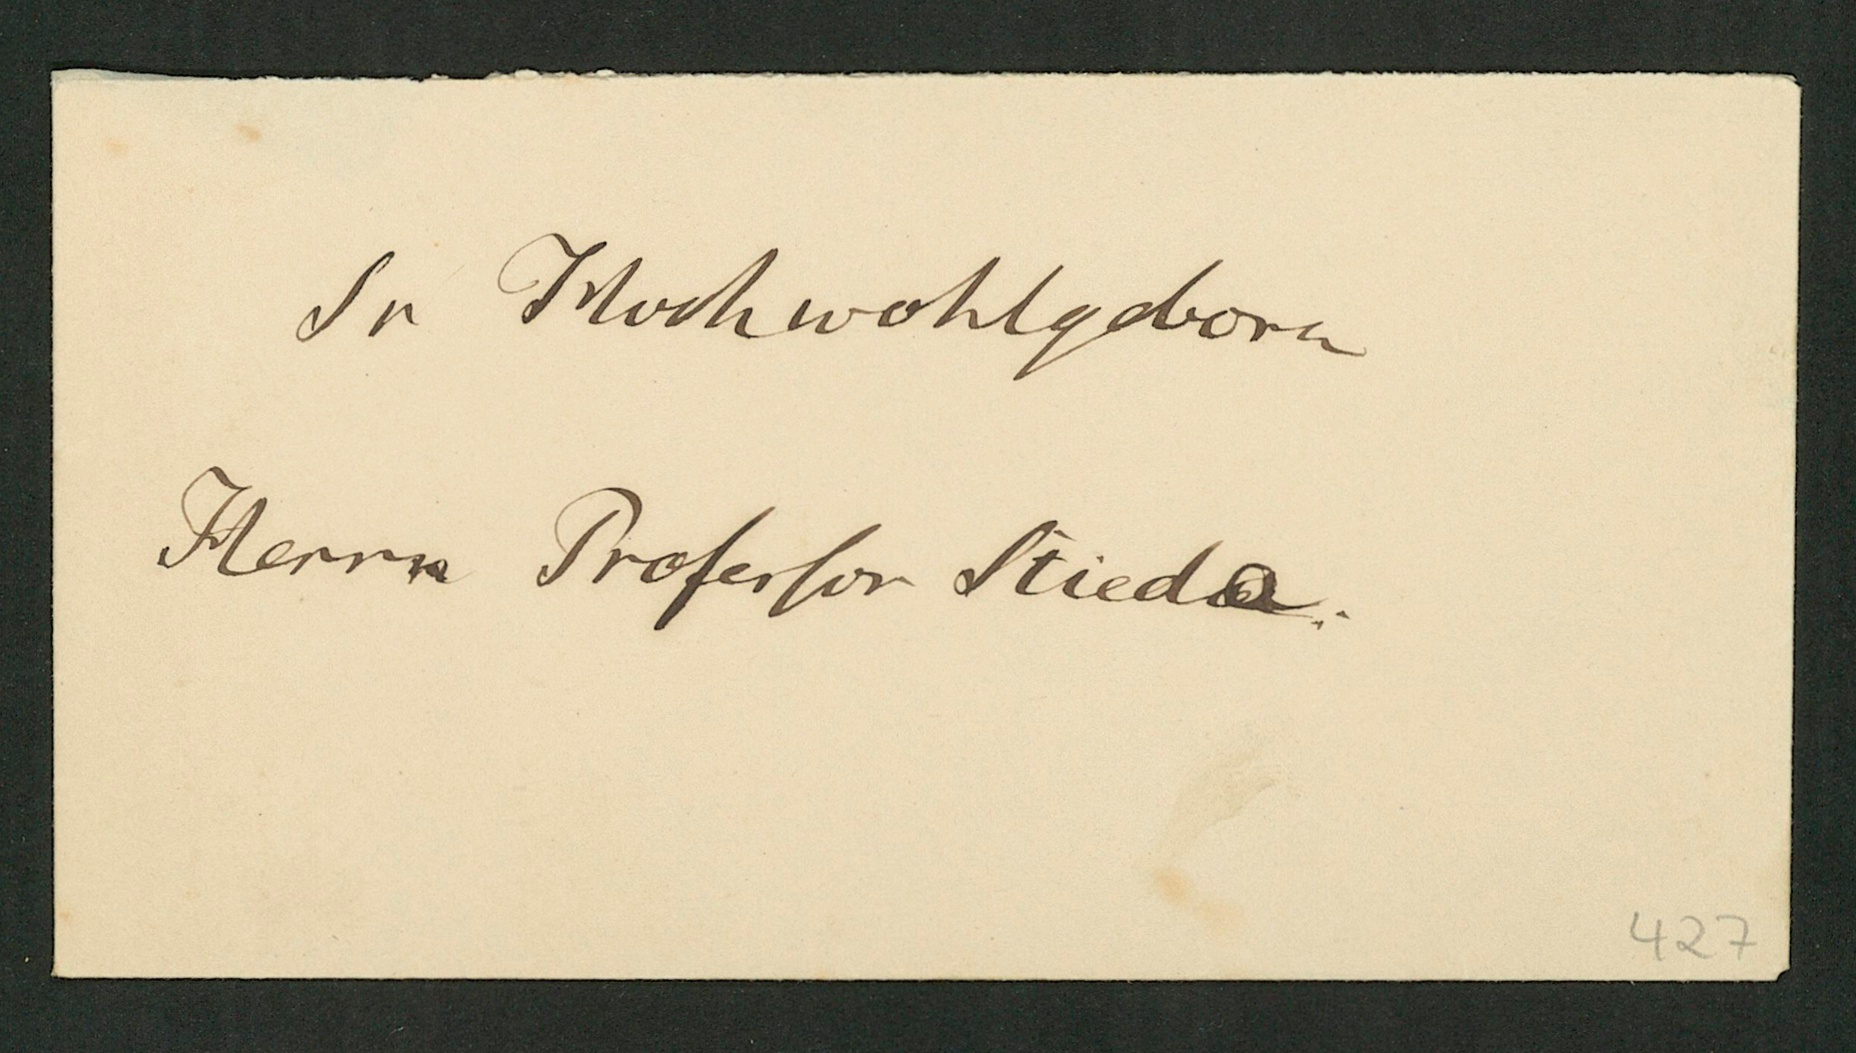 Sr Hochwohlgeborn
Herrn Professor Stieda.
427